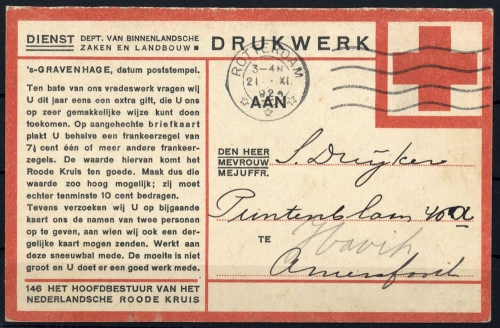 DIENST DEPT. VAN BINNENLANDSCHE
ZAKEN EN LANDBOUW
's-GRAVENHAGE, datum poststempel.
Ten bate van ons vredeswerk vragen wij
U dit jaar eens een extra gift, die U ons
op zeer gemakkelijke wijze kunt doen
toekomen. Op aangehechte briefkaart
plakt U behalve een frankeerzegel van
7½ cent één of meer andere frankeer-
zegels. De waarde hiervan komt het
Roode Kruis ten goede. Maak dus die
waarde zoo hoog mogelijk; zij moet
echter tenminste 10 cent bedragen.
Tevens verzoeken wij U op bijgaande
kaart ons de namen van twee personen
op te geven, aan wien wij ook een der-
gelijke kaart mogen zenden. Werkt aan
deze sneeuwbal mede. De moeite is niet
groot en U doet er een goed werk mede.
146 HET HOOFDBESTUUR VAN HET
NEDERLANDSCHE ROODE KRUIS
DRUKWERK
ROTTERDAM
3-4
21 XI
AAN
DEN HEER
MEVROUW
MEJUFFR.
S. Druijker
40a
TE
Amersfoort